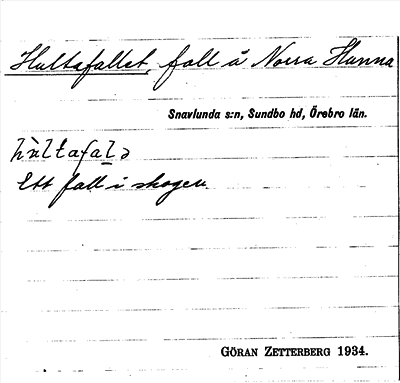 Hultafallet, fall å Norra Hanna
Snavlunda s:n, Sundbo hd, Örebro län.
hùltafalə
Ett fall i skogen
GÖRAN ZETTERBERG 1934.